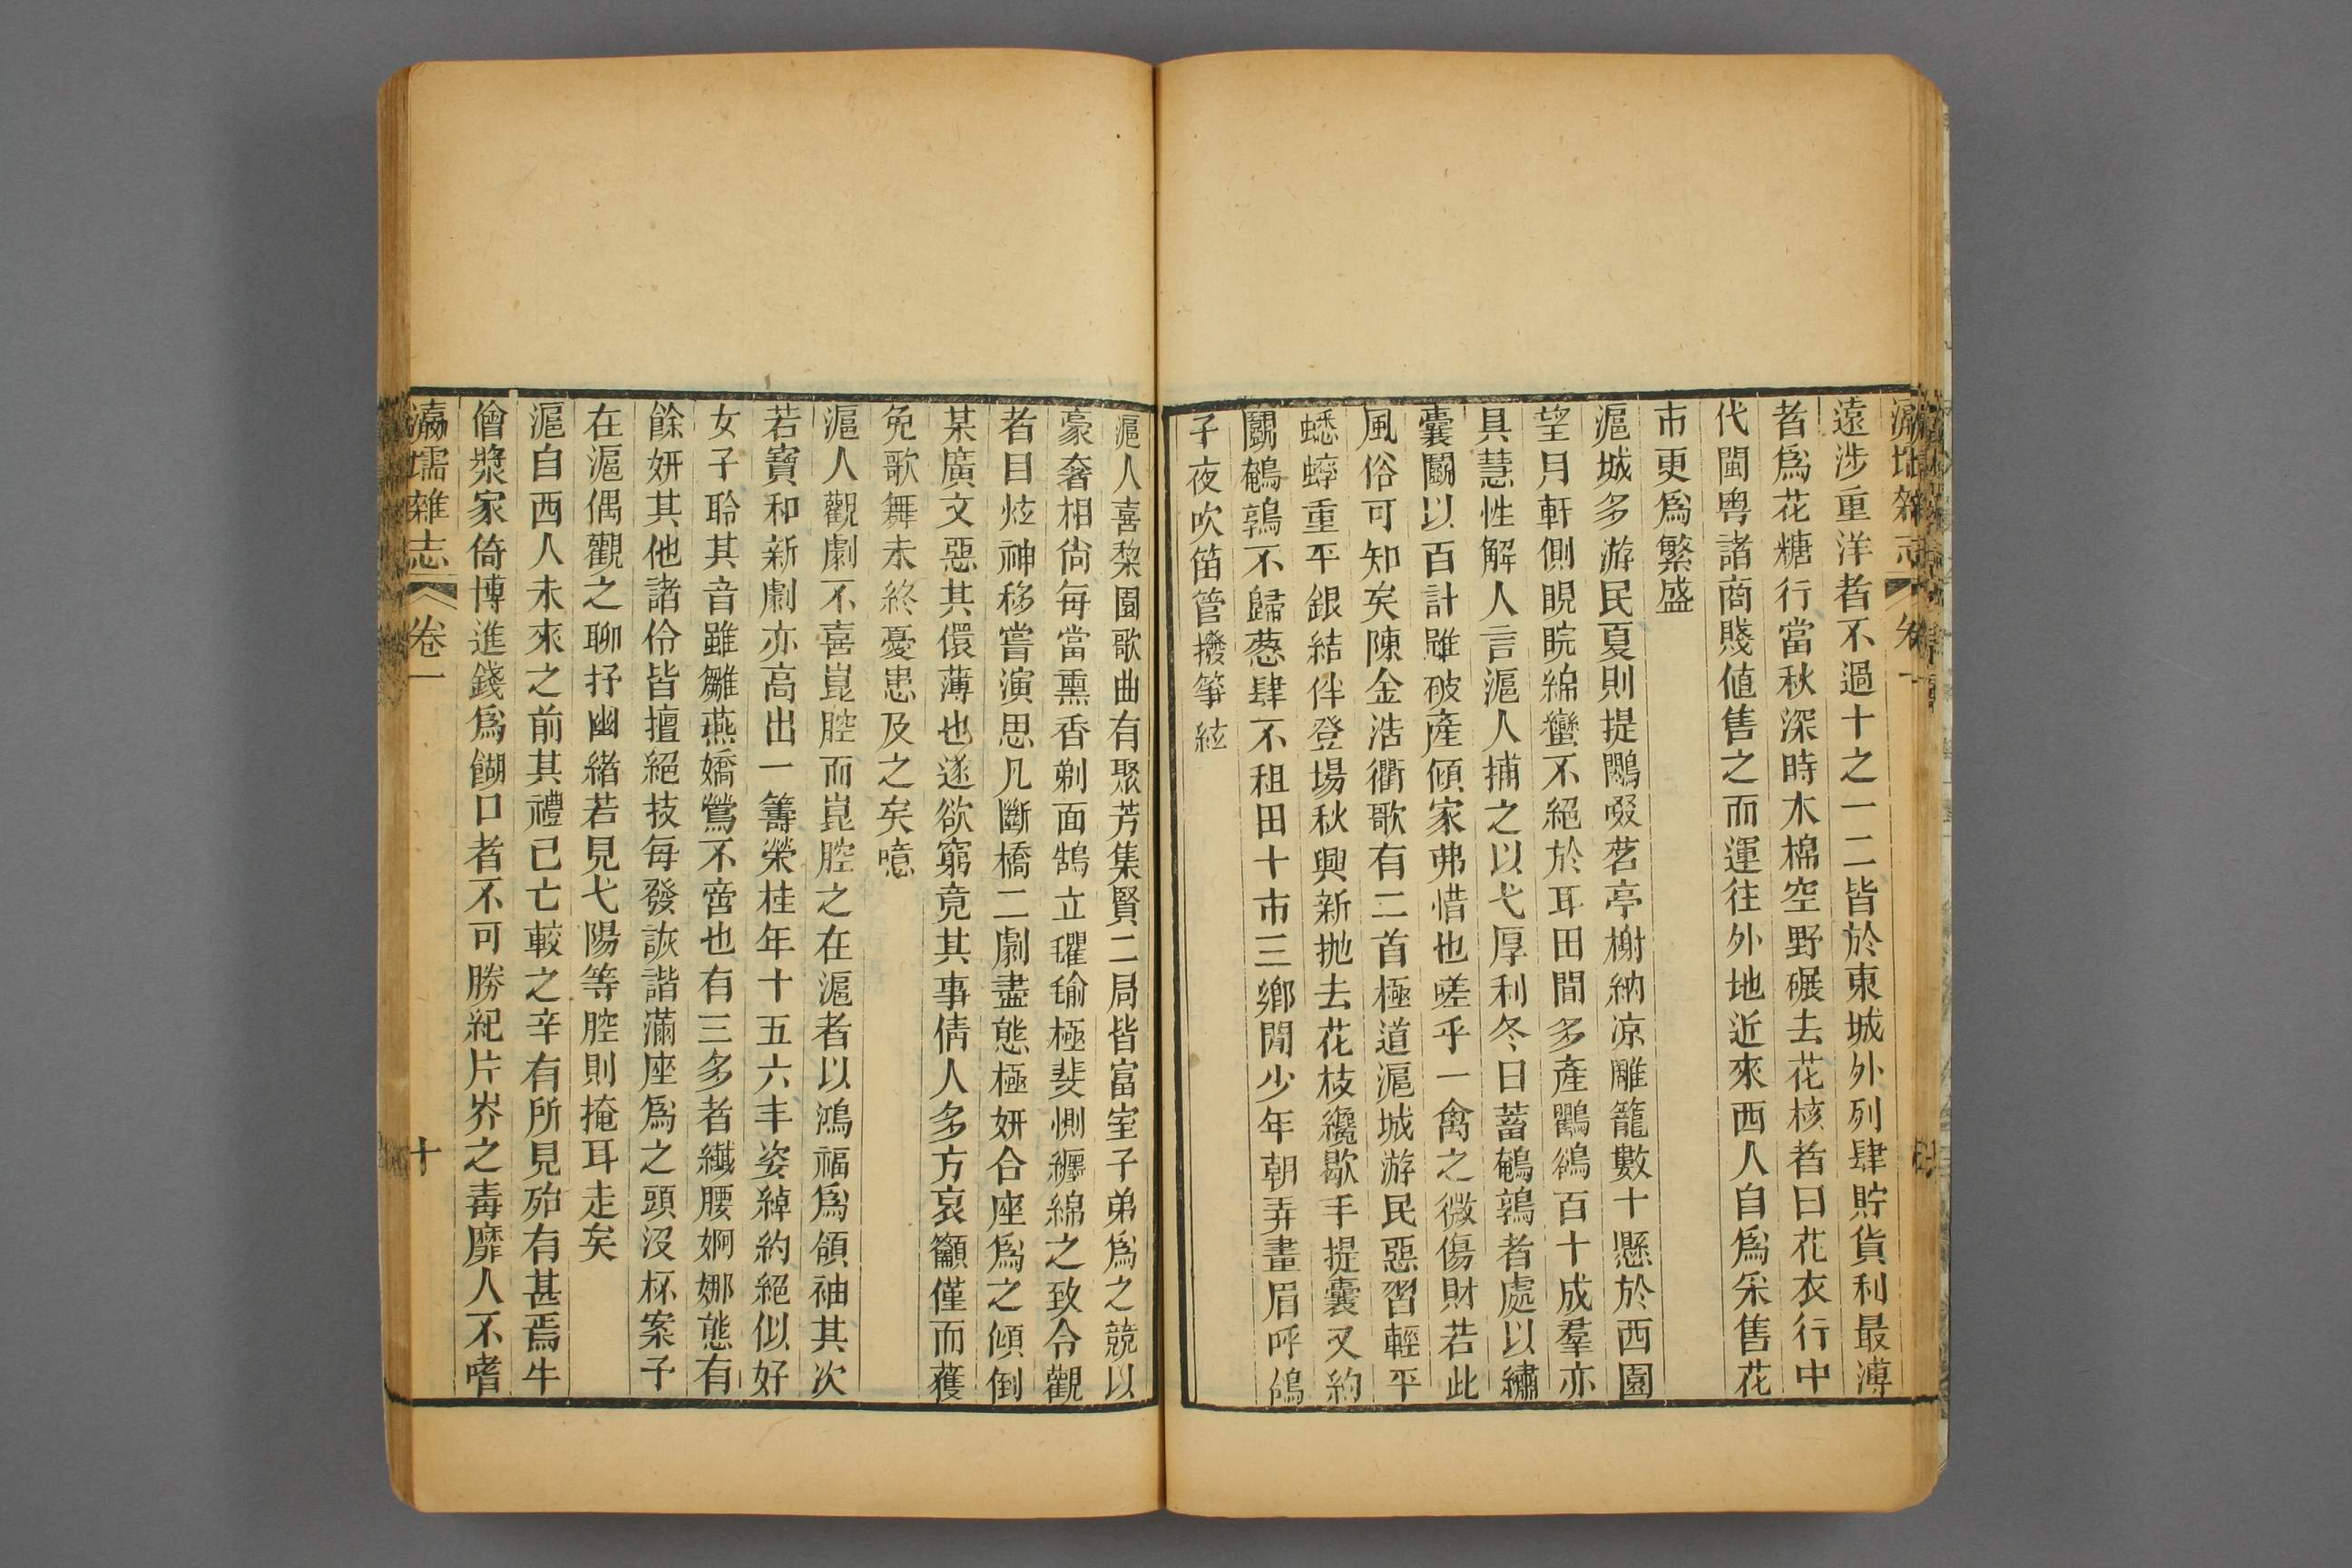 瀛壖雜志 卷一
遠涉重洋者不過十之一二皆於東城外列肆貯貨利最溥
者爲花糖行當秋深時木棉空野碾去花核者曰花衣行中
代閩粵諸商賤値售之而運往外地近來西人自爲采售花
市更爲繁盛
滬城多游民夏則提鷳啜茗亭榭納凉雕籠數十懸於西園
望月軒側睍睆綿蠻不絕於耳田間多產鸜鵒百十成羣亦
具慧性解人言滬人捕之以弋厚利冬日蓄鵪鶉者處以繡
囊鬭以百計雖破產傾家弗惜也嗟乎一禽之微傷財若此
風俗可知矣陳金浩衢歌有二首極道滬城游民惡習輕平
蟋蟀重平銀結伴登場秋興新抛去花枝纔歇手提囊又約
鬭鵪鶉不歸葱肆不租田十市三鄉閒少年朝弄畫眉呼鴿
子夜吹笛管撥箏絃
滬人喜棃園歌曲有聚芳集賢二局皆富室子弟爲之競以
豪奢相尙每當熏香剃面鵠立氍毹極斐惻纒綿之致令觀
者目炫神移嘗演思凡斷橋二劇盡態極妍合座爲之傾倒
某廣文惡其儇薄也遂欲窮竟其事倩人多方哀籲僅而獲
免歌舞未終憂患及之矣噫
滬人觀劇不喜崑腔而崑腔之在滬者以鴻福爲領袖其次
若寶和新劇亦高出一籌榮桂年十五六丰姿綽約絕似好
女子聆其音雖雛燕嬌鶯不啻也有三多者纖腰婀娜態有
餘妍其他諸伶皆擅絕技每發詼諧滿座爲之頭沒杯案子
在滬偶觀之聊抒幽緖若見弋陽等腔則掩耳走矣
滬自西人未來之前其禮已亡較之辛有所見殆有甚焉牛
儈漿家倚博進錢爲餬口者不可勝紀片芥之毒靡人不嗜
瀛壖雜志 卷一 十